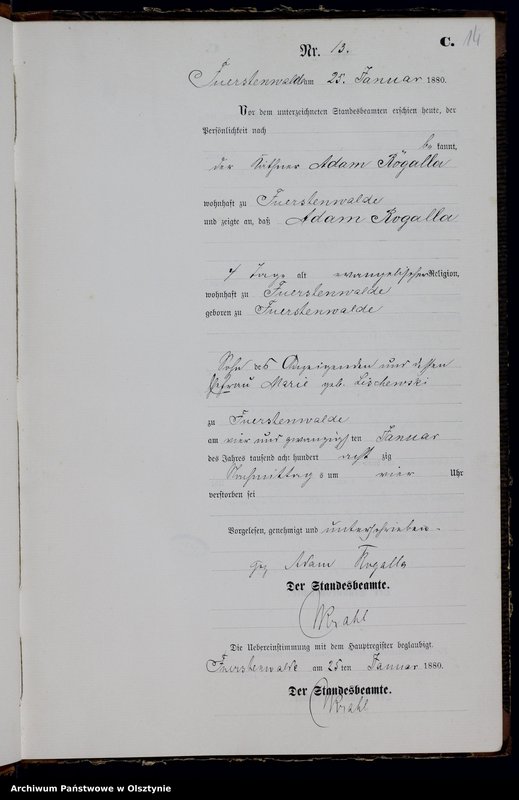 C. 14
Nr. 13.
Fuerstenwalde am 25. Januar 1880.
Vor dem unterzeichneten Standesbeamten erschien heute, der
Persönlichkeit nach
be kannt,
der Käthner Adam Rogalla
wohnhaft zu Fuerstenwalde
und zeigte an, daß Adam Rogalla
7 Tage alt evangelischer Religion,
wohnhaft zu Fuerstenwalde
geboren zu Fuerstenwalde
Sohn des Anzeigenden und dessen
Ehefrau Marie geb. Lischewski
zu Fuerstenwalde
am vier und zwanzigsten Januar
des Jahres tausend acht hundert acht zig
Nachmittags um vier Uhr
verstorben sei
Vorgelesen, genehmigt und unterschrieben
gez Adam Rogalla
Der Standesbeamte.
Krahl
Die Uebereinstimmung mit dem Hauptregister beglaubigt.
Fuerstenwalde am 25 ten Januar 1880.
Der Standesbeamte.
Krahl
Archiwum Państwowe w Olsztynie